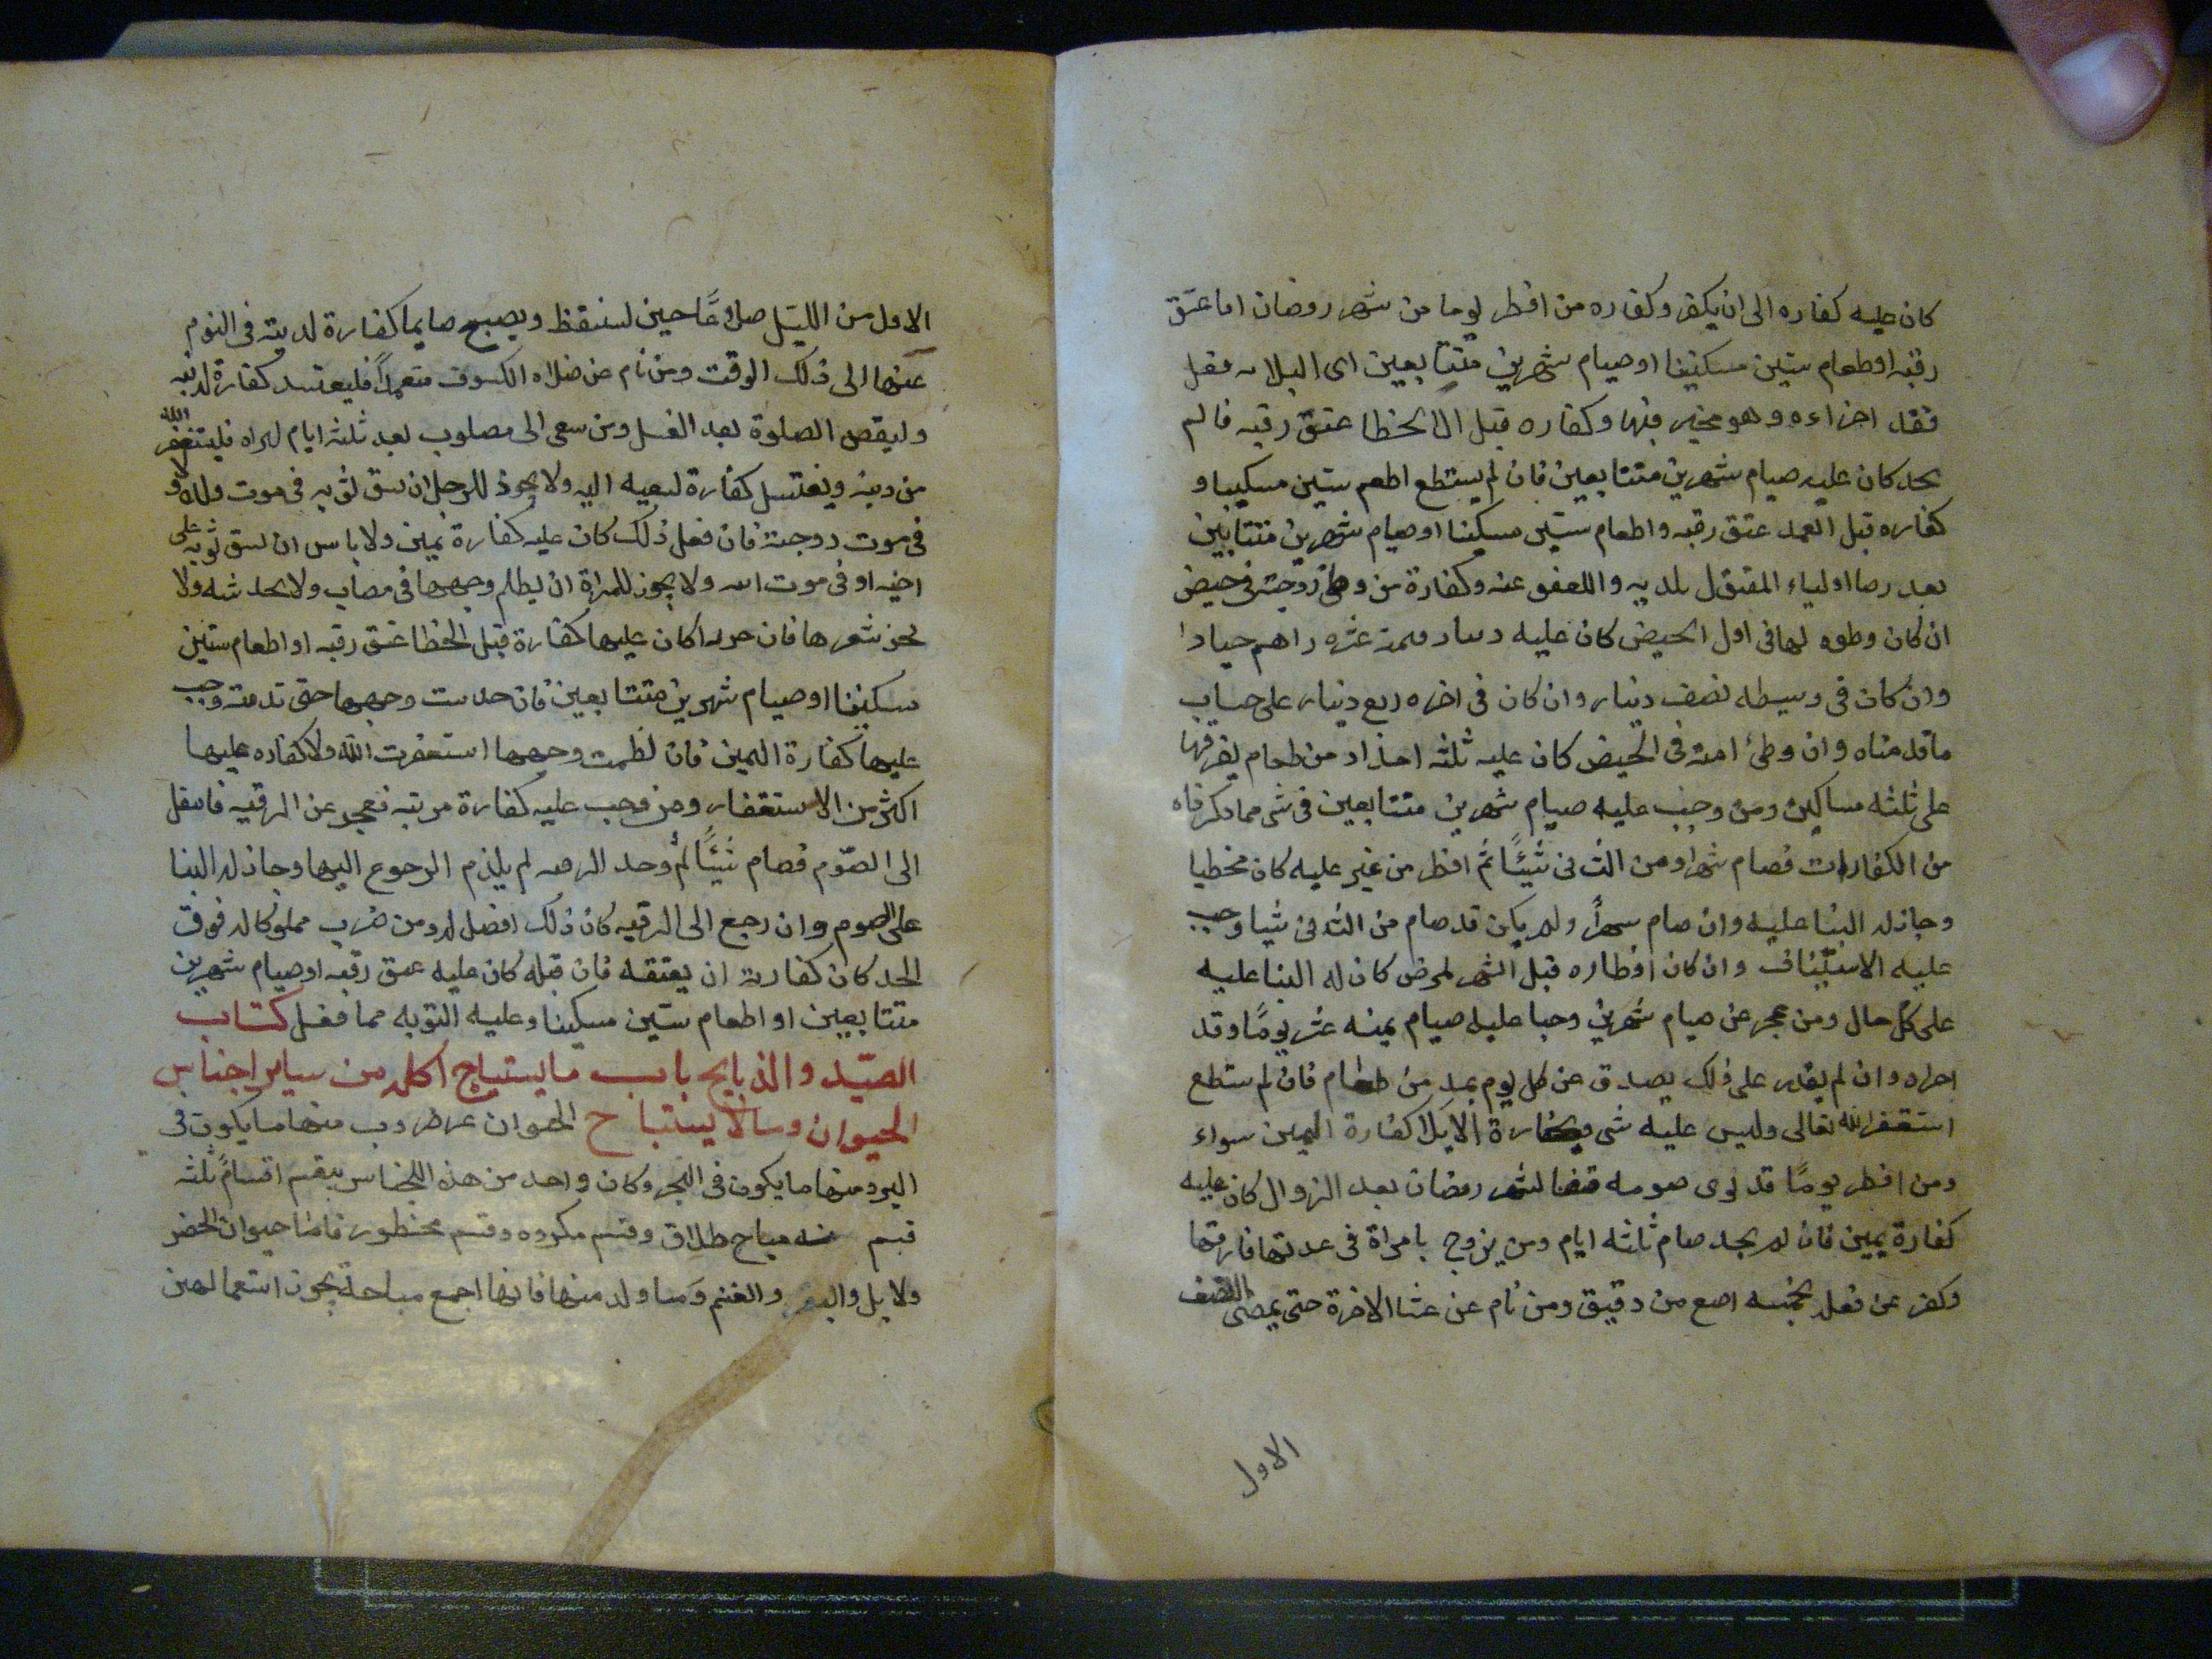 كان عليه كفاره الى ان يكفر وكفاره من افطر يوما من شهر رمضان اما عتق
رقبه او طعام ستين مسكينا او صيام شهرين متتابعين اى الثلاث فعل
فقد اجزاءه وهو مخير فيها وكفاره قتل الخطا عتق رقبه فان لم
يجد كان عليه صيام شهرين متتابعين فان لم يستطع اطعم ستين مسكينا و
كفاره قتل العمد عتق رقبه واطعام ستين مسكينا او صيام شهرين متتابعين
بعد رضا اولياء المقتول بلديه واللعفو عنه وكفارة من وطئ زوجته فى حيض
ان كان وطوه لها فى اول الحيض كان عليه دينار قيمته عشره دراهم جيادا
وان كان فى وسطه نصف دينار وان كان فى اخره ربع دينار على حساب
ما قدمناه وان وطئ امته فى الحيض كان عليه ثلثه امداد من طعام يفرقها
على ثلثه مساكين ومن وجب عليه صيام شهرين متتابعين فى شى مما ذكرناه
من الكفارات فصام شهرا ومن الثانى شيئًا ثم افطر من غير عليه كان مخطيا
وجاز له البنا عليه وان صام شهرًا ولم يكن قد صام من الثانى شيا وجب
عليه الاستيناف وان كان افطاره قبل الشهر لمرض كان له البنا عليه
على كل حال ومن عجز عن صيام شهرين وجبا عليه صيام ثمنيه عشر يومًا وقد
اجزاه وان لم يقدر على ذلك يصدق عن كل يوم بمد من طعام فان لم ستطع
استغفر الله تعالى وليس عليه شى وكفارة الايلا كفارة اليمين سواء
ومن افطر يومًا قد نوى صومه قضا لشهر رمضان بعد الزوال كان عليه
كفارة يمين فان لم يجد صام ثلثه ايام ومن يزوج بامراة فى عدتها فارقها
وكفر عن فعله بخمسه اصع من دقيق ومن نام عن عشا الاخرة حتى يمضى النصف
الاول
الاول من الليل صلاها حين ليستيقظ ويصبح صايما كفارة لذنبه فى النوم
عنها الى ذلك الوقت ومن نام عن صلاه الكسوف متعمدًا فليغتسل كفارة لذنبه
وليقض الصلوة بعد الغسل ومن سعى الى مصلوب بعد ثلثه ايام ليراه فليستغفر الله
من ذنبه ويغتسل كفارة لسعيه اليه ولا يجوز للرجل ان يشق ثوبه فى موت ولده ولا
فى موت زوجته فان فعل ذلك كان عليه كفارة يمين ولا باس ان يشق ثوبه على
اخيه او فى موت ابيه ولا يجوز للمراة ان يطلم وجهها فى مصاب ولا يخدشه ولا
نجز شعرها فان جزته كان عليها كفارة قتل الخطا عتق رقبه او اطعام ستين
مسكينا او صيام شهرين متتابعين فان خدشت وجهها حتى تدمته وجب
عليها كفارة اليمين فان لطمت وجهها استغفرت الله ولا كفاره عليها
اكثر من الاستغفار ومن وجب عليه كفارة مرتبه فعجز عن الرقبه فانتقل
الى الصوم فصام شيئًا ثم وجد الرقبه لم يلزم الرجوع اليها وجاز له البنا
على الصوم وان رجع الى الرقبه كان ذلك افضل له ومن ضرب مملوكا له فوق
الحد كان كفارته ان يعتقه فان قتله كان عليه عتق رقبه او صيام شهرين
متتابعين او اطعام ستين مسكينا وعليه التوبه مما فعل كتاب
الصيد والذبايح باب ما يستباح اكله من ساير اجناس
الحيوان وما لا يستباح الحيوان على ضروب منها ما يكون فى
البر ومنها ما يكون فى البحر وكان واحد من هذه الاجناس ينقسم اقسامً ثلثه
قسم منه مباح طلاق وقسم مكروه وقسم محظور فاما حيوان الحضر
ولابل والبقر والغنم وما ولد منها فانها اجمع مباحة يجوز استعمالهن